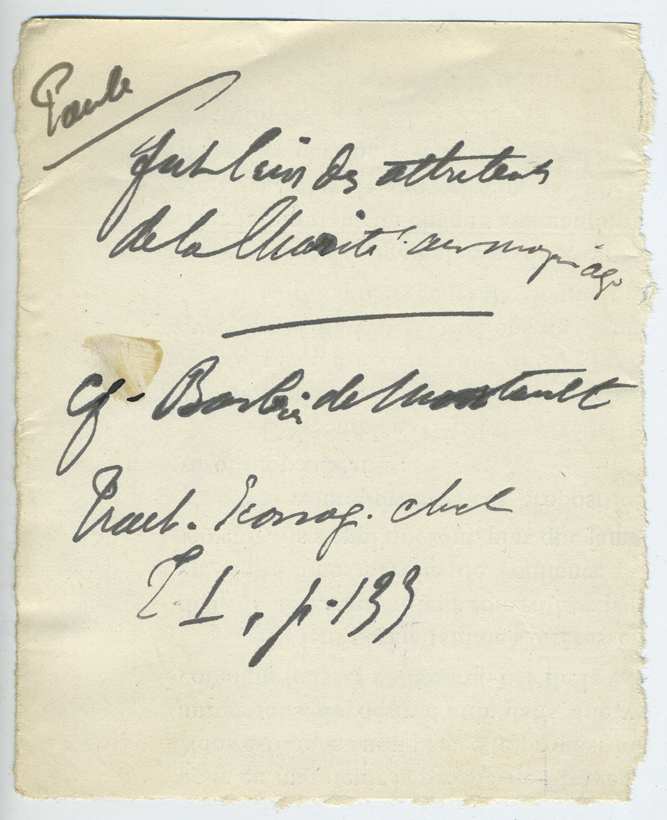 Poule
fut l'un des attributs
de la Charité au moyen âge
cf. Barbier de Montault
Trait. Iconog. chret
T I, p. 133